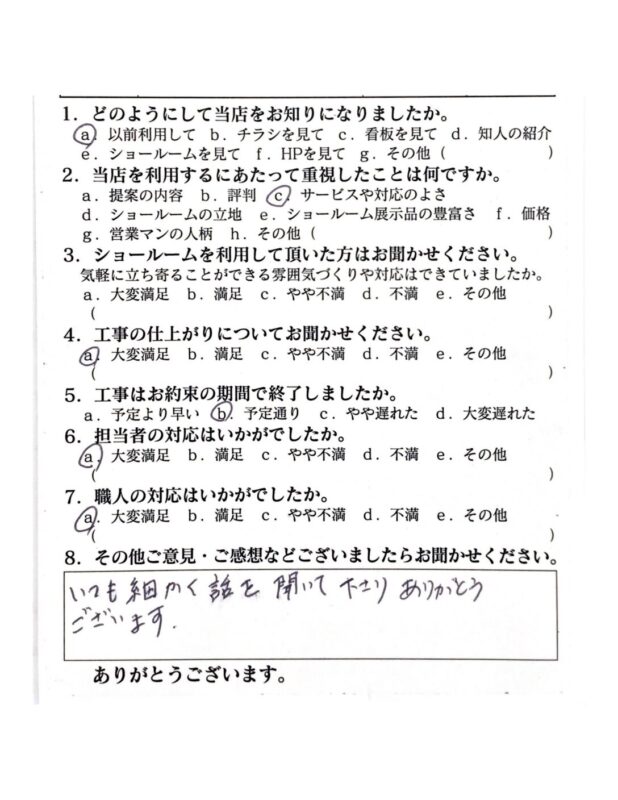 1．どのようにして当店をお知りになりましたか。
a．以前利用して b．チラシを見て c．看板を見て d．知人の紹介
e．ショールームを見て f．HPを見て g．その他（　　　　　　　）
2．当店を利用するにあたって重視したことは何ですか。
a．提案の内容 b．評判 c．サービスや対応のよさ
d．ショールームの立地 e．ショールーム展示品の豊富さ f．価格
g．営業マンの人柄 h．その他（　　　　　　　）
3．ショールームを利用して頂いた方はお聞かせください。
気軽に立ち寄ることができる雰囲気づくりや対応はできていましたか。
a．大変満足 b．満足 c．やや不満 d．不満 e．その他
（　　　　　　　）
4．工事の仕上がりについてお聞かせください。
a．大変満足 b．満足 c．やや不満 d．不満 e．その他
（　　　　　　　）
5．工事はお約束の期間で終了しましたか。
a．予定より早い b．予定通り c．やや遅れた d．大変遅れた
6．担当者の対応はいかがでしたか。
a．大変満足 b．満足 c．やや不満 d．不満 e．その他
（　　　　　　　）
7．職人の対応はいかがでしたか。
a．大変満足 b．満足 c．やや不満 d．不満 e．その他
（　　　　　　　）
8．その他ご意見・ご感想などございましたらお聞かせください。
いつも細かく話を聞いて下さりありがとう
ございます．
ありがとうございます。